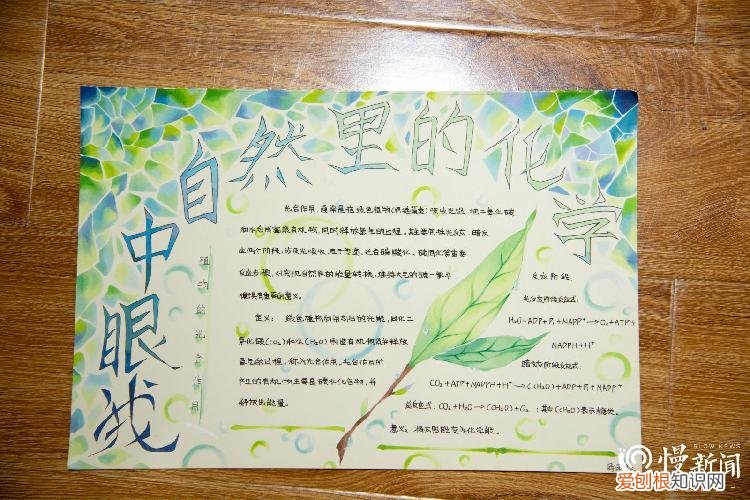 我眼中
自然里的化学
植物的光合作用
光合作用，通常是指绿色植物(包括藻类)吸收光能，把二氧化碳
和水合成富能有机物，同时释放氧气的过程，其主要包括光反应、暗反
应两个阶段，涉及光吸收、电子传递、光合磷酸化、碳同化等重要
反应步骤，对实现自然界的能量转换、维持大气的碳-氧平
衡具有重要的意义。
定义：绿色植物利用太阳的光能，同化二
氧化碳(CO₂)和水(H₂O)制造有机物质并释放
氧气的过程，称为光合作用，光合作用所
产生的有机物主要是碳水化合物，并
释放出能量。
反应阶段：
光反应阶段反应式：
H₂O+ADP+Pi+NADP⁺→O₂+ATP+
NADPH+H⁺
暗反应阶段反应式：
CO₂+ATP+NADPH+H⁺→(CH₂O)+ADP+Pi+NADP⁺
总反应式：CO₂+H₂O→(CH₂O)+O₂；其中(CH₂O)表示糖类。
意义：将太阳能变为化学能。
SLOW NEWS
慢新闻
爱刨根知识网